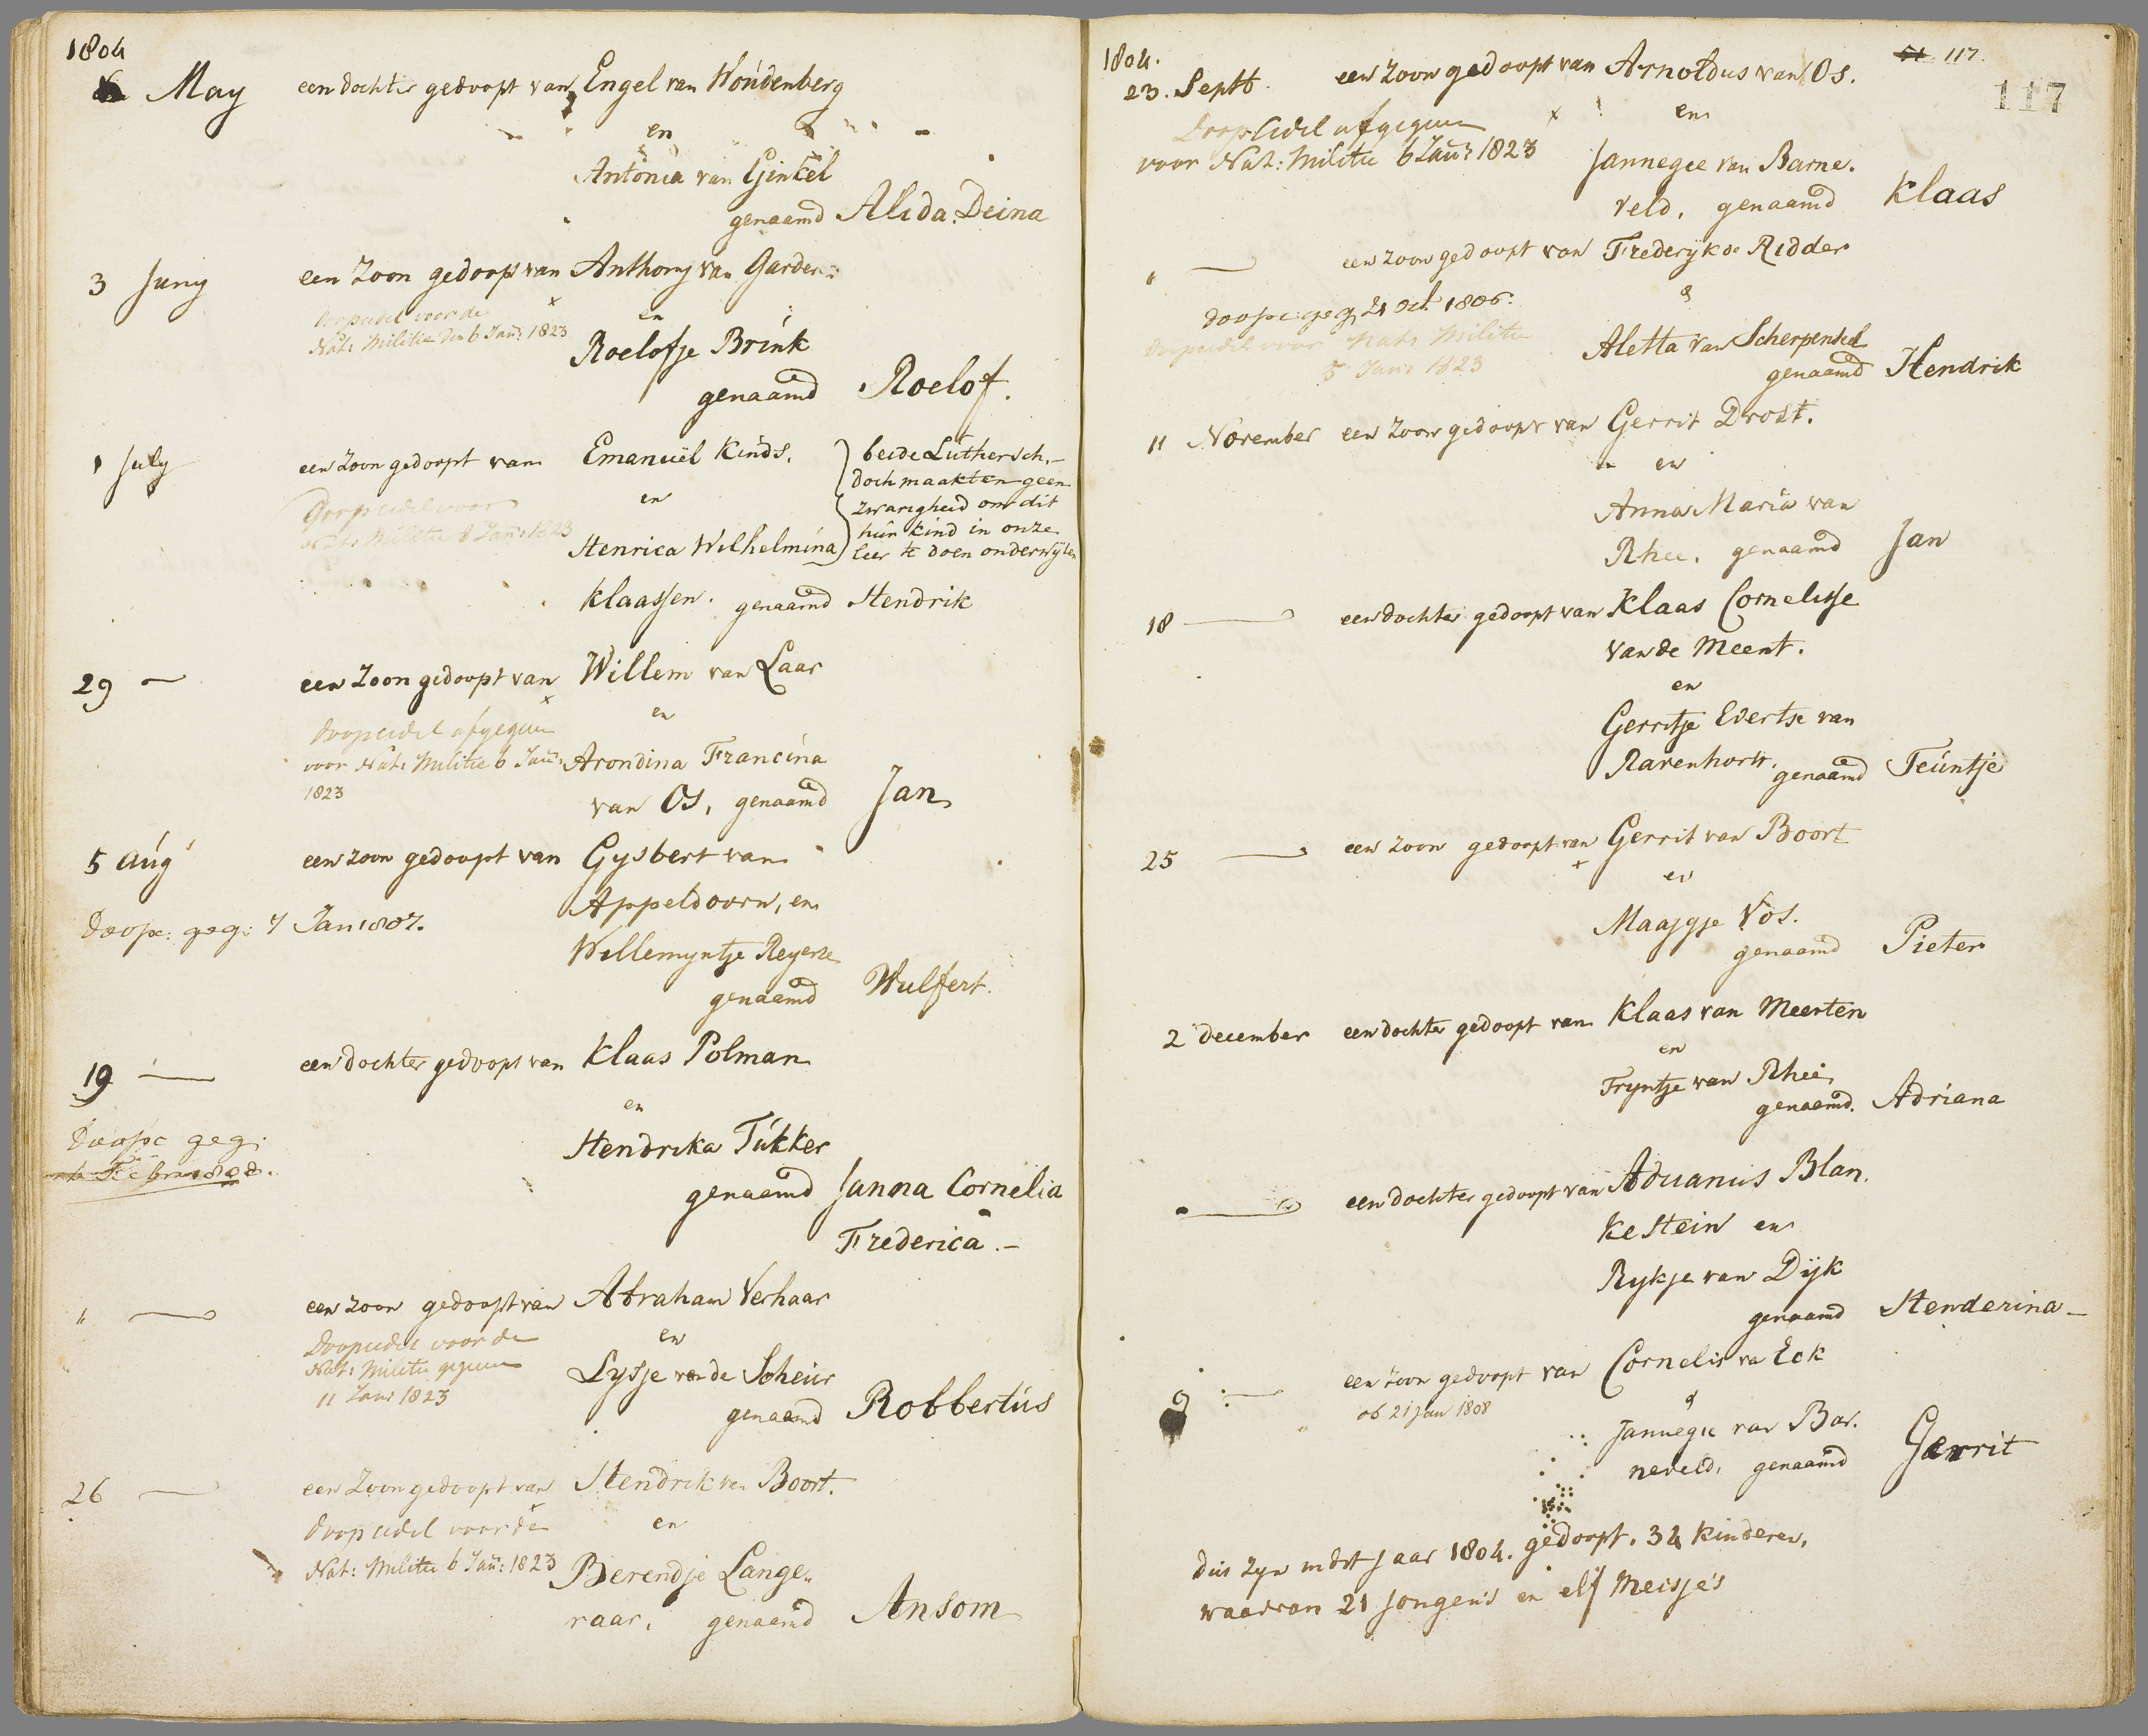 1804
May een dochter gedoopt van Engel van Woúdenberg
en
Antonia van Ginkel
genaamd Alida Deina
3 Juny een Zoon gedoopt van Anthony van Garder:
Doopcedel voor de
Nat: Militie den 6 Jan: 1823
en
Roelofje Brink
genaamd Roelof.
1 July een Zoon gedoopt van Emanuël Kinds.
beide Luthersch,
doch maakten geen
zwarigheid om dit
hún kind in onze
leer te doen onderwijzen
Doopcedel voor
Nat: Militie 8 Jan: 1823
en
Henrica Wilhelmina
Klaassen. genaamd Hendrik
29 — een Zoon gedoopt van Willem van Laar
Doopcedel afgegeven
voor Nat: Militie 6 Jan:
1823
en
Arondina Francina
van Os, genaamd Jan
5 Aúg een zoon gedoopt van Gysbert van
Appeldoorn, en
Doopc: geg: 4 Jan 1807.
Willemyntje Reyerse
genaamd Wulfert.
19 — een dochter gedoopt van Klaas Polman
en
Doopc geg:
Hendrika Túkker
genaamd Janna Cornelia
Frederica. —
" — een zoon gedoopt van Abraham Verhaar
Doopcedel voor de
Nat: Militie gegeven
11 Jan: 1823
en
Lysje van de Scheúr
genaamd Robbertús
26 — een Zoon gedoopt van Hendrik van Boort.
Doopcedel voor de
Nat: Militie 6 Jan: 1823
en
Berendje Lange„
raar, genaamd Ansom
1804. 51 117.
117
23. Septb. een zoon gedoopt van Arnoldus van Os.
Doopcedel afgegeven
voor Nat: Militie 6 Jan: 1823
en
Jannegee van Barne.
veld, genaamd Klaas
" — een zoon gedoopt van Frederijk de Ridder
doopc: geg, 21 Oct 1806.
Doopcedel voor Nat: Militie
5 Jan: 1823
&
Aletta van Scherpenseel
genaamd Hendrik
11 November een zoon gedoopt van Gerrit Drost.
en
Anna Maria van
Rhee, genaamd Jan
18 — een dochter gedoopt van Klaas Cornelisse
van de Meent.
en
Gerritje Evertse van
Ravenhorst, genaamd Teúntje
25 — een zoon gedoopt van Gerrit van Boort
en
Maasgje Vos.
genaamd Pieter
2 December een dochter gedoopt van Klaas van Meerten
en
Tryntje van Rhee,
genaamd. Adriana
— een dochter gedoopt van Adrianus Blan.
kestein en
Rykje van Dijk
genaamd Henderina —
9 : — een zoon gedoopt van Cornelis va Eck
ob 21 Jan 1808
&
Jannegee van Bar.
neveld, genaamd Gerrit
Dus zyn in dit Jaar 1804. gedoopt. 32 Kinderen,
waarvan 21 Jongens en elf Meisje's